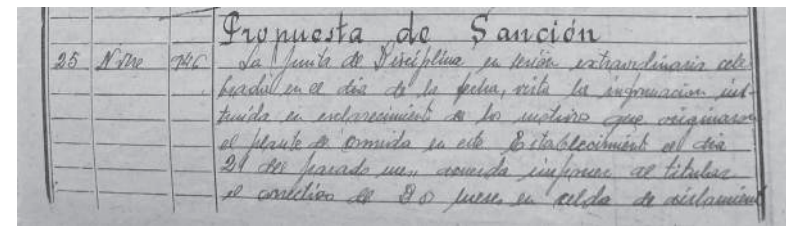 Propuesta de Sanción
25 Nbre 946 La Junta de Disciplina en sesión extraordinaria cele
brada en el dia de la fecha, vista la informacion ins
truída en esclarecimient de los motivos que originaron
el plante de comida en este Establecimient el dia
21 del pasado mes acuerda imponer al titular
el correctivo de Dos meses en celda de aislamient